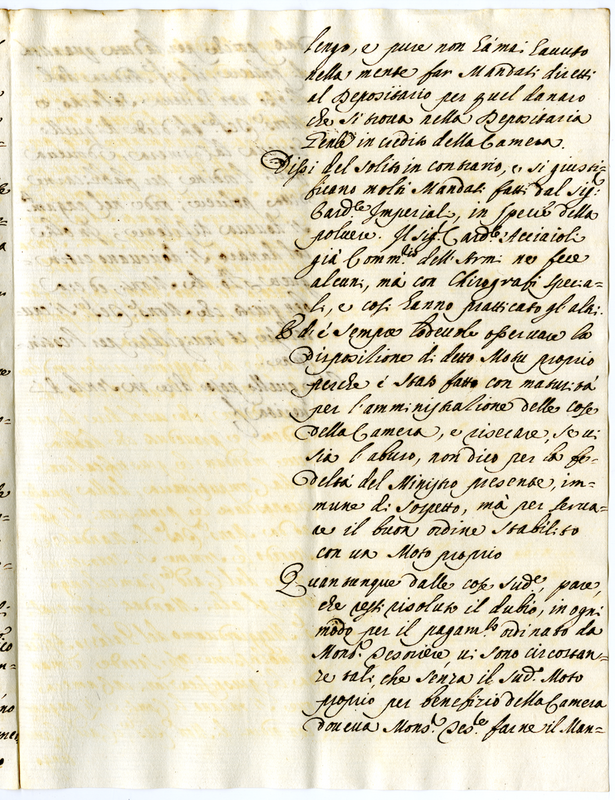 lengo, e pure non hà mai hauuto
nella mente far Mandati diretti
al Depositario per quel danaro
che si troua nella Depositaria
in credito della Camera.
Dissi del solito in contrario, e si giusti-
ficano molti Mandati fatti dal Sig.r
Card.le Imperiali, in specie della
poluere. Il Sig.r Card.le Acciaioli
già Comm.rio dell'Armi ne fece
alcuni, mà con Chirografi specia-
li, e cosi hanno pratticato gl'altri.
Ed è sempre lodeuole osseruare la
disposizione di detto Motu proprio
perche è stato fatto con maturità
per l'amministrazione delle cose
della Camera, e risecare, se ui
sia l'abuso, non dico per la fe-
deltà del Ministro presente, im-
mune di sospetto, mà per serua-
re il buon ordine stabilito
con un Moto proprio
Quantunque dalle cose sud.e pare,
che resti risoluto il dubio, in ogni
modo per il pagam.to ordinato da
Mons.r Tesoriere ui sono circostan-
ze tali che senza il sud.o Moto
proprio per benefizio della Camera
doueua Mons.r Tes.re farne il Man-